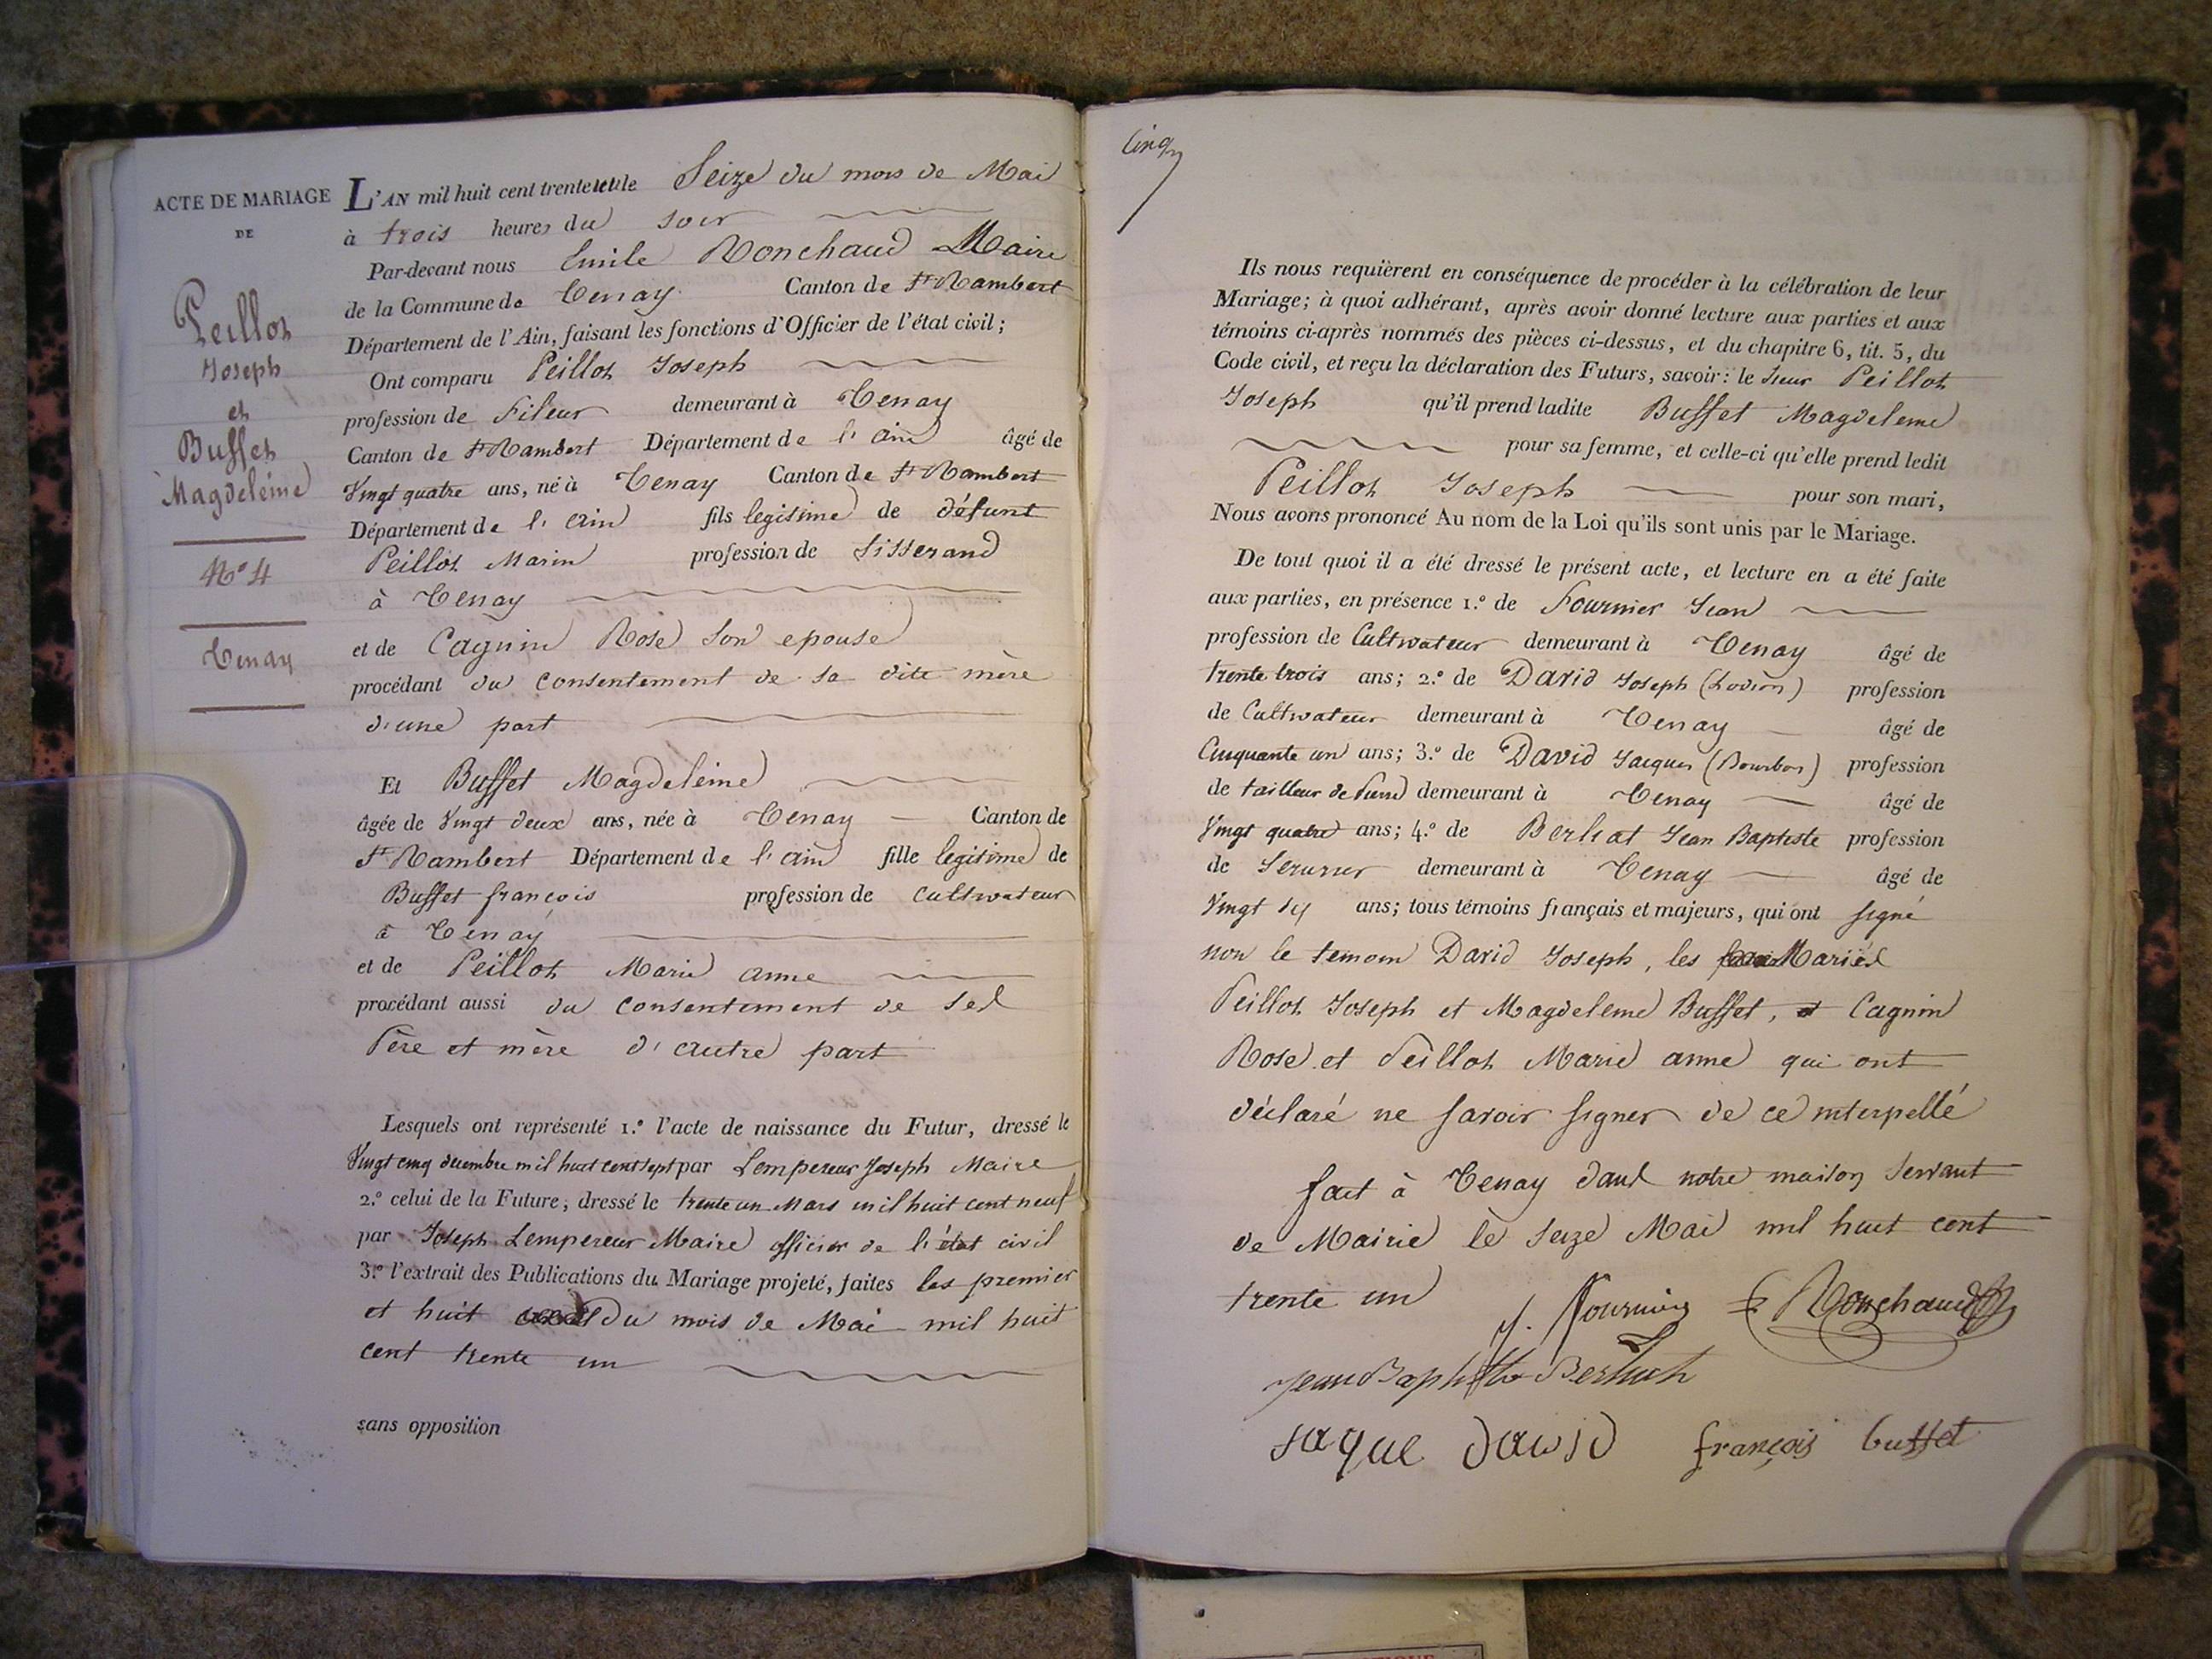 ACTE DE MARIAGE
DE
Peillot
Joseph
et
Buffet
Magdeleine
N° 4
Tenay
L'AN mil huit cent trente et un le Seize du mois de Mai
à trois heures du soir
Par-devant nous Emile Ronchaud Maire
de la Commune de Tenay Canton de St Rambert
Département de l'Ain, faisant les fonctions d'Officier de l'état civil;
Ont comparu Peillot Joseph
profession de fileur demeurant à Tenay
Canton de St Rambert Département de l'ain âgé de
Vingt quatre ans, né à Tenay Canton de St Rambert
Département de l'ain fils legitime de défunt
Peillot Marin profession de tisserand
à Tenay
et de Cagnin Rose son epouse
procédant du consentement de sa dite mère
d'une part
Et Buffet Magdeleine
âgée de Vingt deux ans, née à Tenay Canton de
St Rambert Département de l'ain fille legitime de
Buffet françois profession de cultivateur
à Tenay
et de Peillot Marie anne
procédant aussi du consentement de ses
Père et mère d'autre part
Lesquels ont représenté 1.° l'acte de naissance du Futur, dressé le
Vingt cinq decembre mil huit cent sept par Lempereur Joseph Maire
2.° celui de la Future, dressé le trente un Mars mil huit cent neuf
par Joseph Lempereur Maire officier de l'état civil
3.° l'extrait des Publications du Mariage projeté, faites les premier
et huit du mois de Mai mil huit
cent trente un
sans opposition
Cinq
Ils nous requièrent en conséquence de procéder à la célébration de leur
Mariage; à quoi adhérant, après avoir donné lecture aux parties et aux
témoins ci-après nommés des pièces ci-dessus, et du chapitre 6, tit. 5, du
Code civil, et reçu la déclaration des Futurs, savoir: le sieur Peillot
Joseph qu'il prend ladite Buffet Magdeleine
pour sa femme, et celle-ci qu'elle prend ledit
Peillot Joseph pour son mari,
Nous avons prononcé Au nom de la Loi qu'ils sont unis par le Mariage.
De tout quoi il a été dressé le présent acte, et lecture en a été faite
aux parties, en présence 1.° de Fournier Jean
profession de Cultivateur demeurant à Tenay âgé de
trente trois ans; 2.° de David Joseph profession
de Cultivateur demeurant à Tenay âgé de
Cinquante un ans; 3.° de David Jacques (Bourbon) profession
de tailleur de Pierre demeurant à Tenay âgé de
Vingt quatre ans; 4.° de Berliat Jean Baptiste profession
de Serurier demeurant à Tenay âgé de
Vingt six ans; tous témoins français et majeurs, qui ont signé
non le temoin David Joseph, les Mariés
Peillot Joseph et Magdeleine Buffet, et Cagnin
Rose et Peillot Marie anne qui ont
déclaré ne savoir signer de ce interpellé
fait à Tenay dans notre maison servant
de Mairie le seize Mai mil huit cent
trente un J. Fournier E Ronchaud
Jean Baptiste Berliat
Jaque david françois buffet